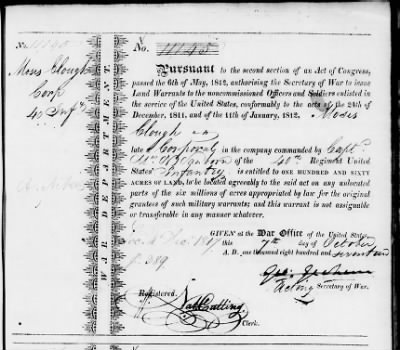 No. 11145
No. 11145
Moses Clough
Corp
40 Inf.
WAR DEPARTMENT.
Pursuant to the second section of an Act of Congress,
passed the 6th of May, 1812, authorising the Secretary of War to issue
Land Warrants to the noncommissioned Officers and Soldiers enlisted in
the service of the United States, conformably to the acts of the 24th of
December, 1811, and of the 11th of January, 1812, Moses
Clough
late a Corporal in the company commanded by Capt
of the 40th Regiment United
States' Infantry is entitled to ONE HUNDRED AND SIXTY
ACRES OF LAND, to be located agreeably to the said act on any unlocated
parts of the six millions of acres appropriated by law for the original
grantees of such military warrants; and this warrant is not assignable
or transferable in any manner whatever.
GIVEN at the War Office of the United States
this 7th day of October
A. D. one thousand eight hundred and seventeen
Geo: Graham
Acting Secretary of War.
Registered.
Nat Cutting
Clerk.